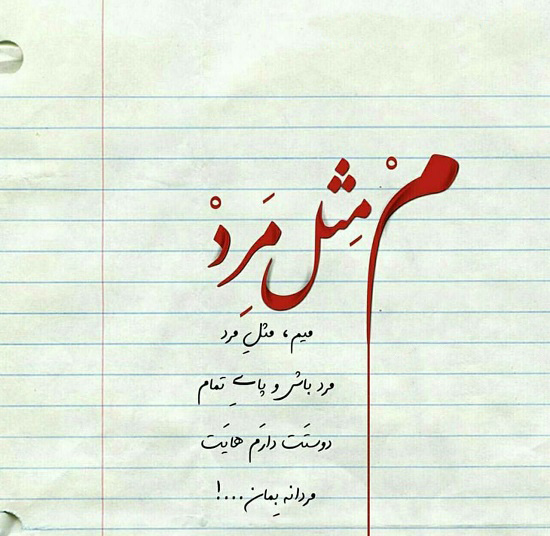 مْ مِثل مَردْ
میم، مثلِ مرد
مرد باش و پاےِ تمام
دوستَت دارَم هایَت
مردانه بِمان...!